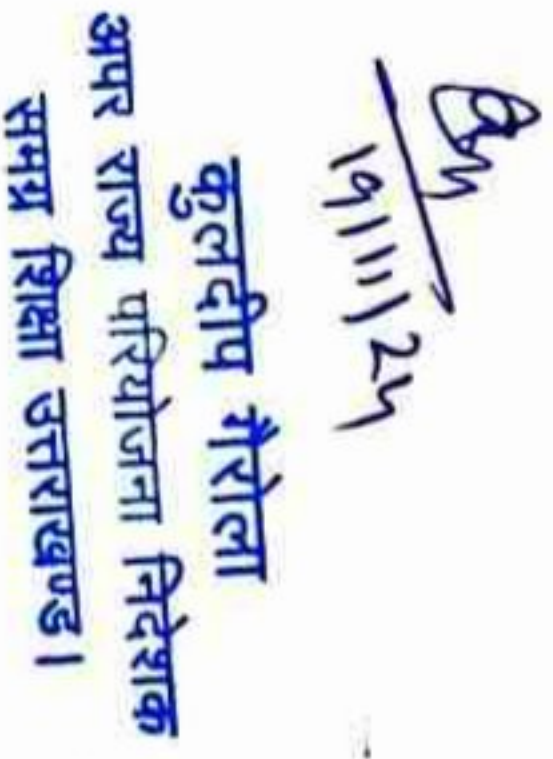 19/11/24
कुलदीप गैरोला
अपर राज्य परियोजना निदेशक
समग्र शिक्षा उत्तराखण्ड।